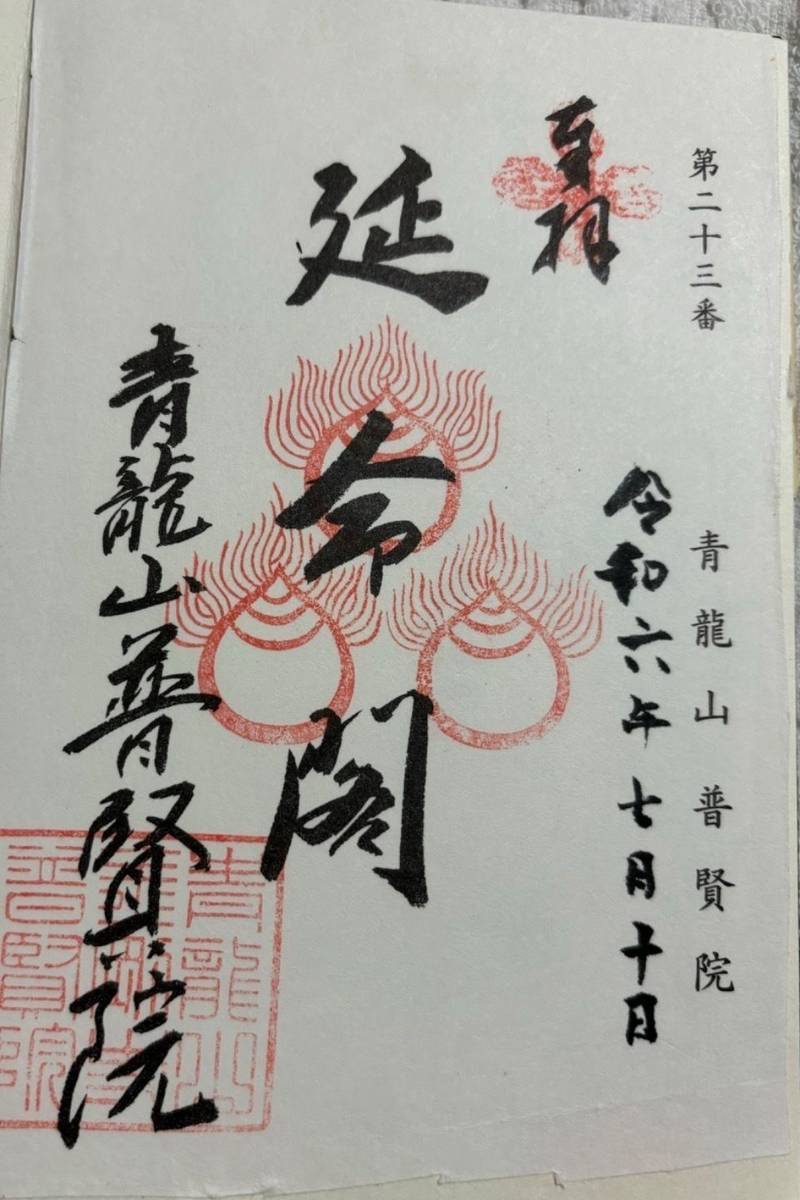 第二十三番 青龍山普賢院
奉拝
令和六年七月十日
延命閣
青龍山普賢院
青龍山
普賢院